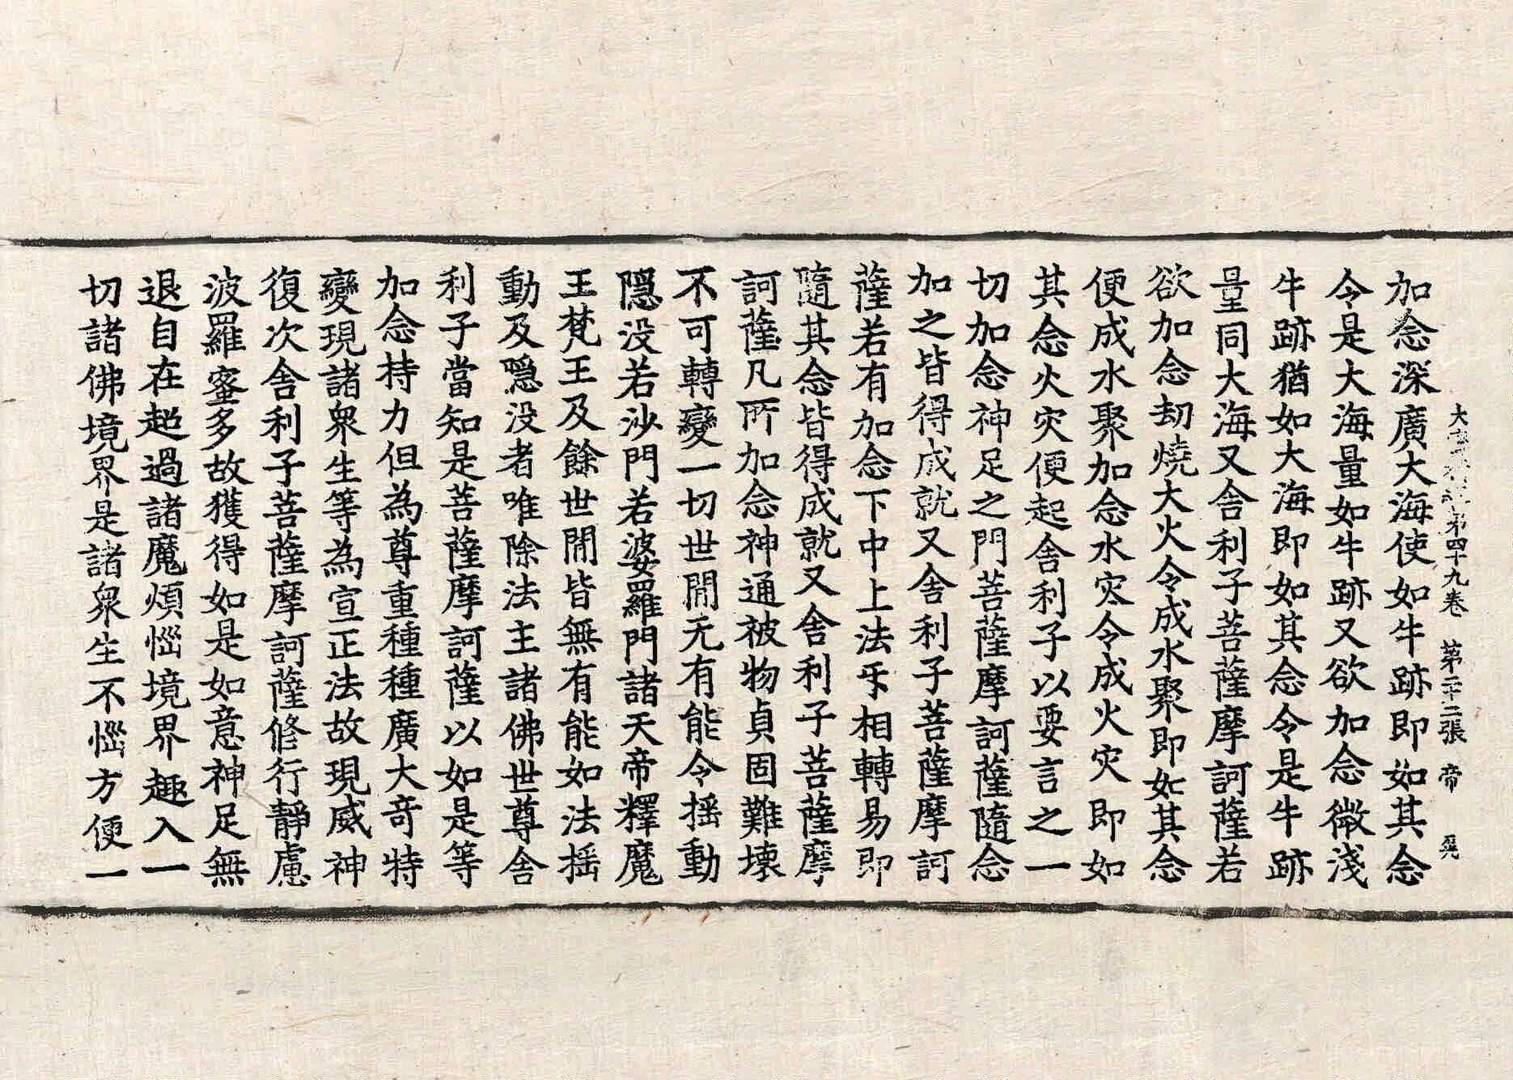 大寶積經第四十九卷 第二十二張 帝 堯
加念深廣大海使如牛跡即如其念
令是大海量如牛跡又欲加念微淺
牛跡猶如大海即如其念令是牛跡
量同大海又舍利子菩薩摩訶薩若
欲加念劫燒大火令成水聚即如其念
便成水聚加念水灾令成火灾即如
其念火灾便起舍利子以要言之一
切加念神足之門菩薩摩訶薩隨念
加之皆得成就又舍利子菩薩摩訶
薩若有加念下中上法㸦相轉易即
隨其念皆得成就又舍利子菩薩摩
訶薩凡所加念神通被物貞固難壞
不可轉變一切世閒无有能令揺動
隱没若沙門若婆羅門諸天帝釋魔
王梵王及餘世閒皆無有能如法揺
動及隱没者唯除法主諸佛世尊舍
利子當知是菩薩摩訶薩以如是等
加念持力但為尊重種種廣大奇特
變現諸衆生等為宣正法故現威神
復次舍利子菩薩摩訶薩修行靜慮
波羅蜜多故獲得如是如意神足無
退自在超過諸魔煩惱境界趣入一
切諸佛境界是諸衆生不惱方便一